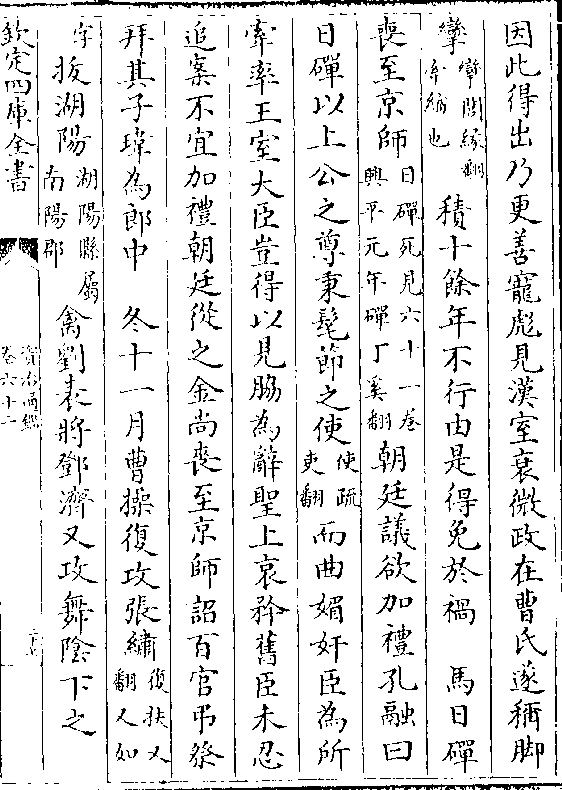 因此得出乃更善寵彪見漢室衰微政在曹氏遂稱脚
攣攣閭緣翻牽縮也積十餘年不行由是得免於禍　馬日磾
喪至京師日磾死見六十一卷興平元年磾丁奚翻朝廷議欲加禮孔融曰
日磾以上公之尊秉髦節之使使疏吏翻而曲媚奸臣為所
牽率王室大臣豈得以見脇為辭聖上哀矜舊臣未忍
追案不宜加禮朝廷從之金尚喪至京師詔百官弔祭
拜其子瑋為郎中　冬十一月曹操復攻張繡復扶又翻又如
字拔湖陽湖陽縣屬南陽郡禽劉表將鄧濟又攻舞陰下之
欽定四庫全書
資治通鑑
卷六十二